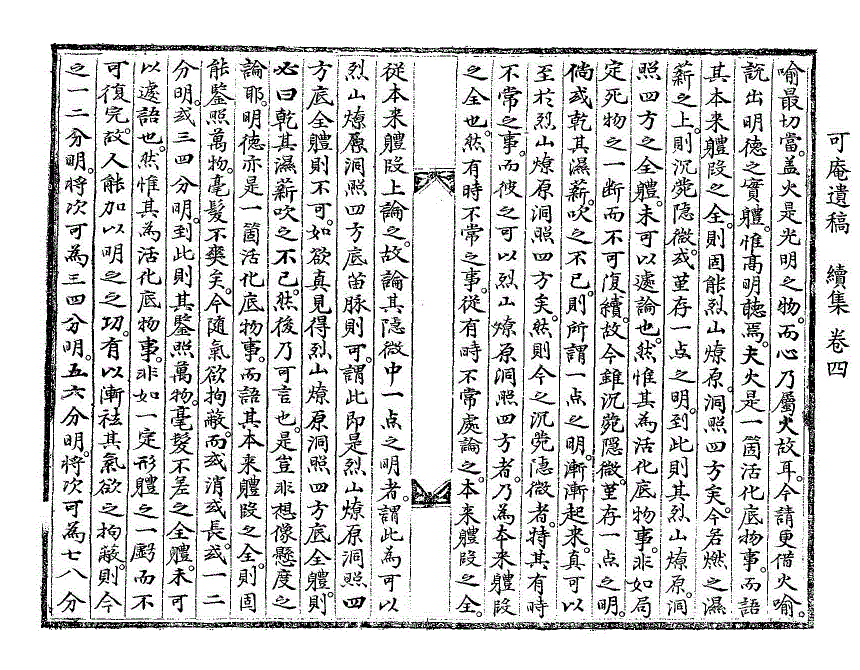 可庵遺稿 續集 卷四
喻最切當。盖火是光明之物。而心乃屬火故耳。今請更借火喻。
說出明德之實體。惟高明聽焉。夫火是一箇活化底物事。而語
其本来體段之全。則固能烈山燎原洞照四方矣。今若燃之濕
薪之上。則沉晦隐微。或堇存一点之明。到此則其烈山燎原。洞
照四方之全體。未可以遽論也。然惟其為活化底物事。非如局
定死物之一断而不可復續。故今雖沉晦隐微。堇存一点之明。
倘或乾其濕薪。吹之不已。則所謂一点之明。漸漸起来。真可以
至於烈山燎原洞照四方矣。然則今之沉晦隐微者。特其有時
不常之事。而彼之可以烈山燎原洞照四方者。乃為本来體段
之全也。然有時不常之事。從有時不常處論之。本来體段之全。
從本来體段上論之。故論其隐微中一点之明者。謂此為可以
烈山燎原洞照四方底苗脉則可。謂此即是烈山燎原洞照四
方底全體則不可。如欲真見得烈山燎原洞照四方底全體。則
必曰乾其濕薪吹之不已。然後乃可言也。是豈非想像懸度之
論耶。明德亦是一箇活化底物事。而語其本来體段之全。則固
能鑒照萬物。毫髮不爽矣。今随氣欲拘蔽。而或消或長。或一二
分明。或三四分明。到此則其鑒照萬物毫髮不差之全體。未可
以遽語也。然惟其為活化底物事。非如一定形體之一斷而不
可復完。故人能加以明之之功。有以漸祛其氣欲之拘蔽。則今
之一二分明。將次可為三四分明。五六分明。將次可為七八分